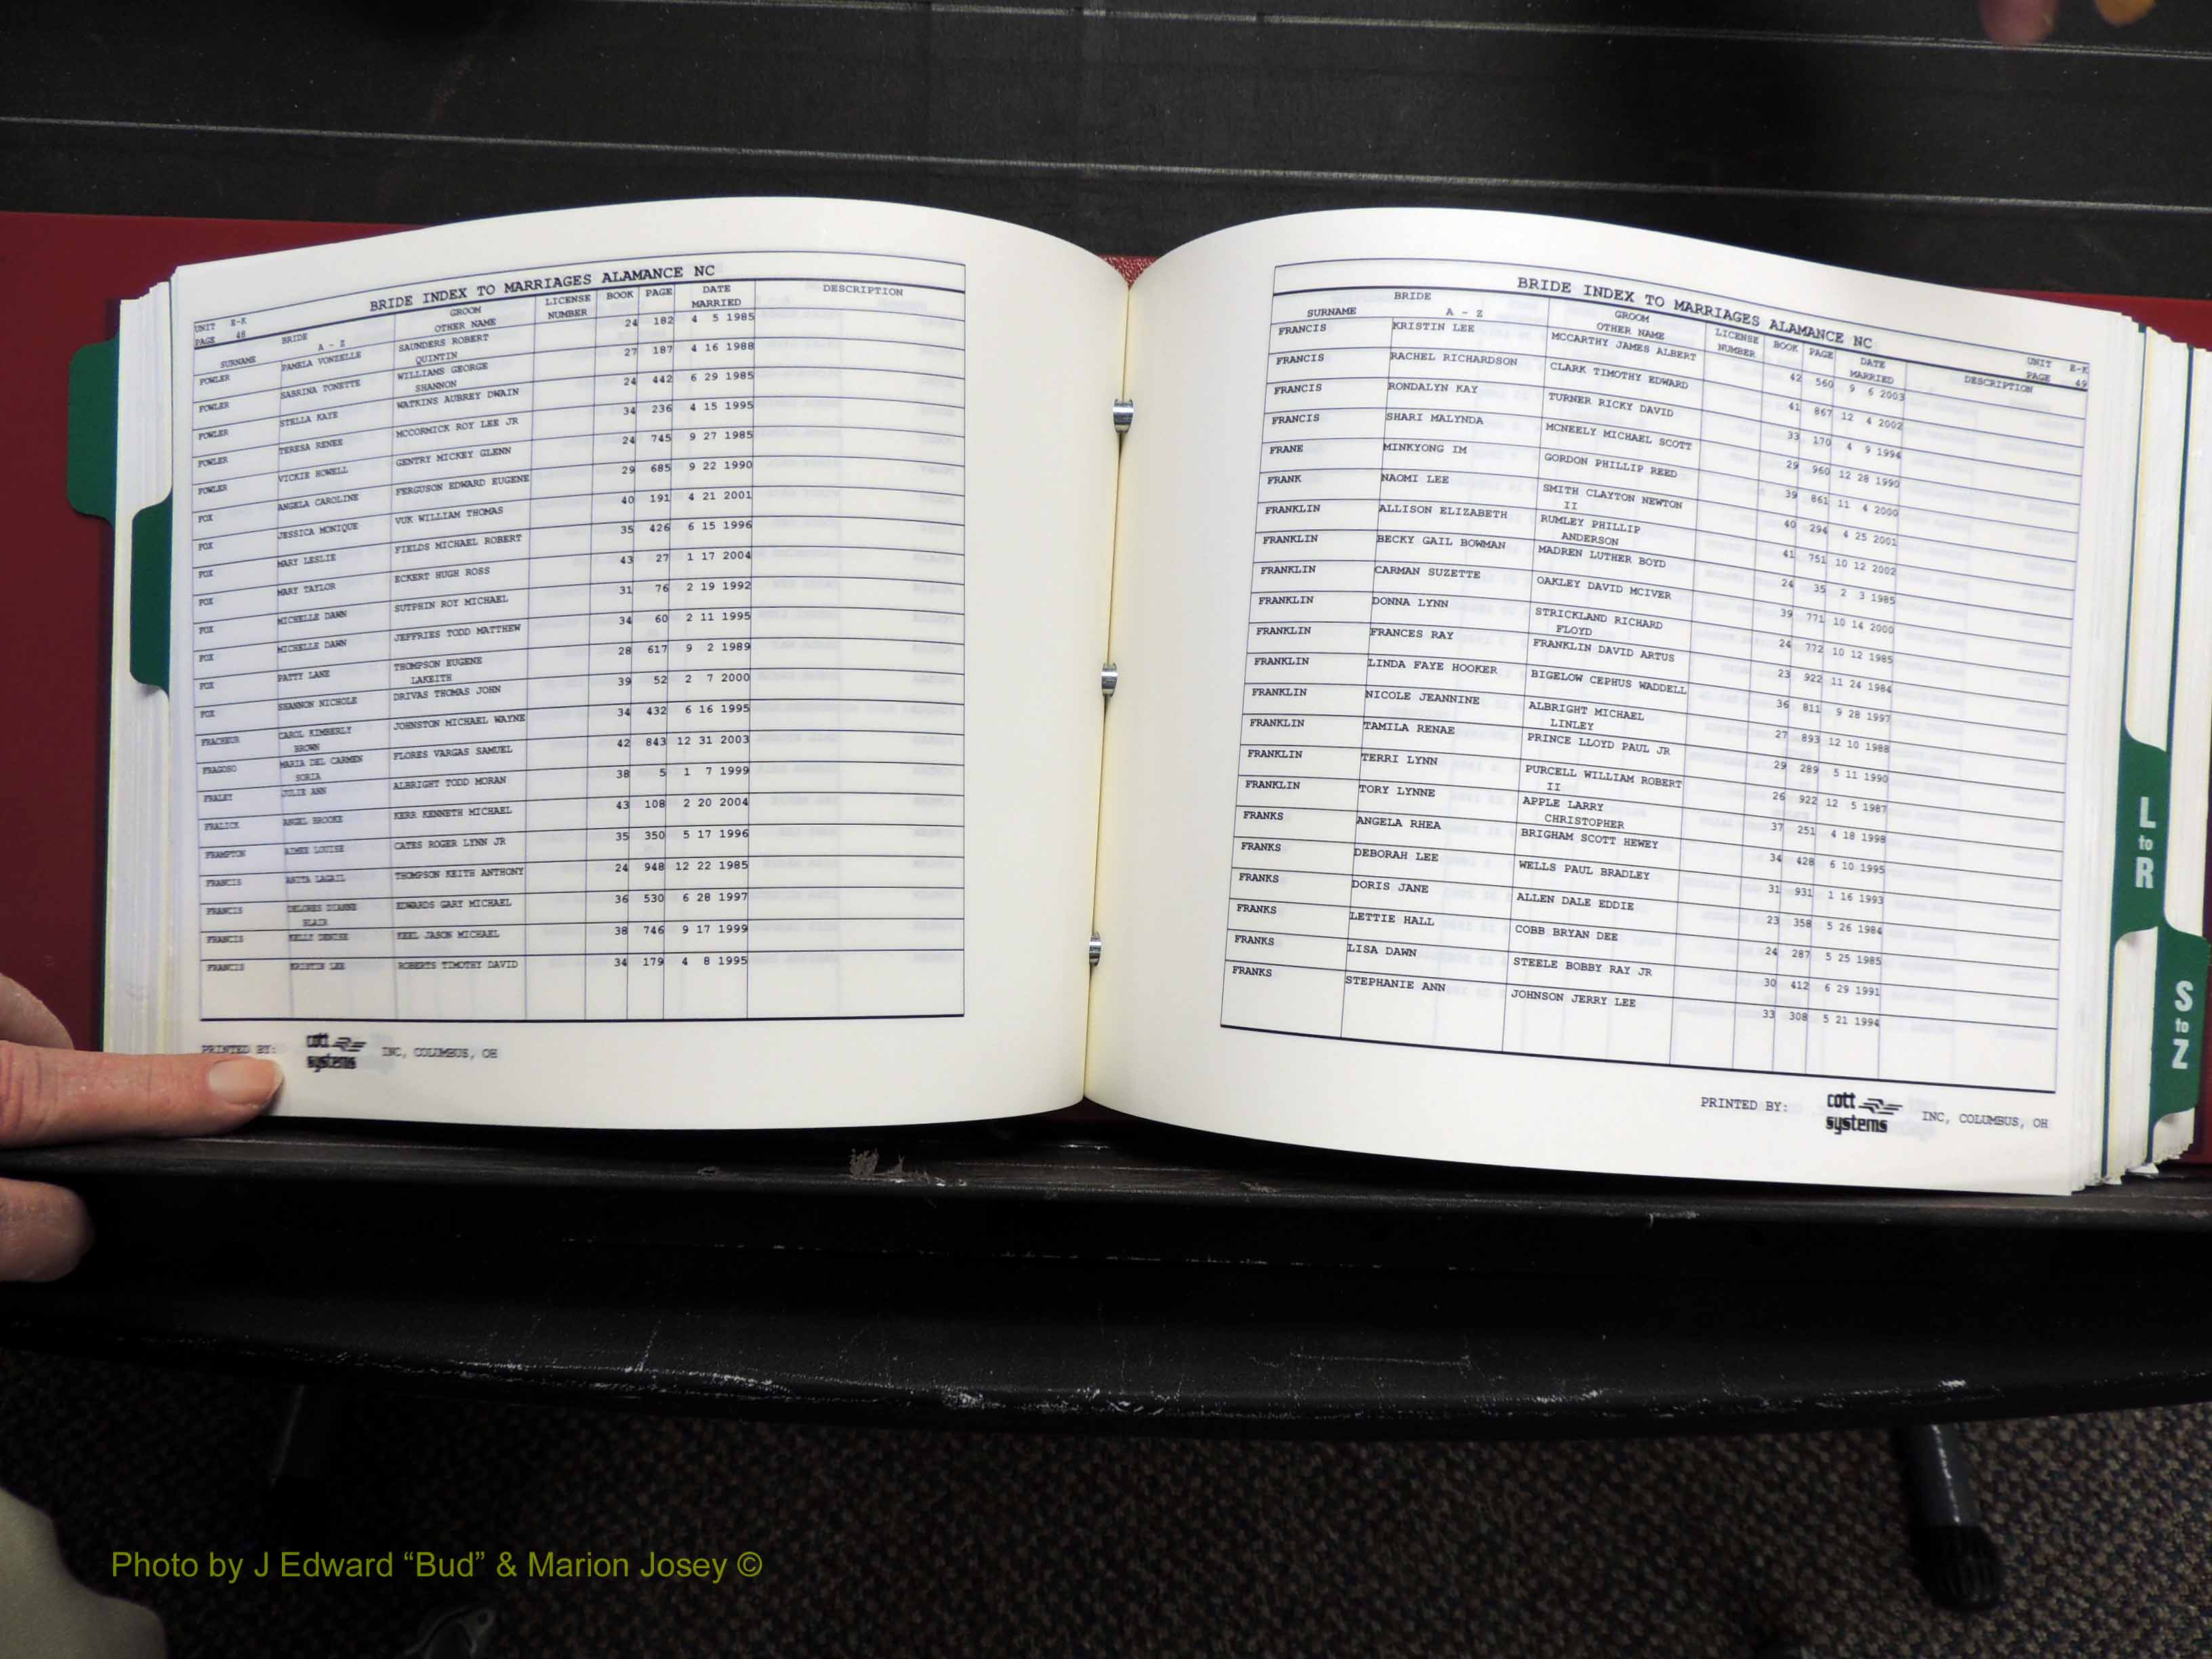 BRIDE INDEX TO MARRIAGES ALAMANCE NC
UNIT E-K
PAGE 48
SURNAME BRIDE A - Z GROOM OTHER NAME LICENSE NUMBER BOOK PAGE DATE MARRIED DESCRIPTION
FOWLER PAMELA VONZELLE SAUNDERS ROBERT 24 182 4 5 1985
QUINTIN
FOWLER SABRINA TONETTE WILLIAMS GEORGE 27 187 4 16 1988
SHANNON
FOWLER STELLA KAYE WATKINS AUBREY DWAIN 24 442 6 29 1985
FOWLER TERESA RENEE MCCORMICK ROY LEE JR 34 236 4 15 1995
FOWLER VICKIE HOWELL GENTRY MICKEY GLENN 24 745 9 27 1985
FOX ANGELA CAROLINE FERGUSON EDWARD EUGENE 29 685 9 22 1990
FOX JESSICA MONIQUE VUK WILLIAM THOMAS 40 191 4 21 2001
FOX MARY LESLIE FIELDS MICHAEL ROBERT 35 426 6 15 1996
FOX MARY TAYLOR ECKERT HUGH ROSS 43 27 1 17 2004
FOX MICHELLE DAWN SUTPHIN ROY MICHAEL 31 76 2 19 1992
FOX MICHELLE DAWN JEFFRIES TODD MATTHEW 34 60 2 11 1995
FOX PATTY LANE THOMPSON EUGENE 28 617 9 2 1989
LAKEITH
FOX SHANNON NICHOLE DRIVAS THOMAS JOHN 39 52 2 7 2000
FRACHEUR CAROL KIMBERLY JOHNSTON MICHAEL WAYNE 34 432 6 16 1995
BROWN
FRAGOSO MARIA DEL CARMEN FLORES VARGAS SAMUEL 42 843 12 31 2003
SORIA
FRALEY JULIE ANN ALBRIGHT TODD MORAN 38 5 1 7 1999
FRALICK ANGEL BROOKE KERR KENNETH MICHAEL 43 108 2 20 2004
FRAMPTON AIMEE LOUISE CATES ROGER LYNN JR 35 350 5 17 1996
FRANCIS ANITA LAGAIL THOMPSON KEITH ANTHONY 24 948 12 22 1985
FRANCIS DELORES DIANNE EDWARDS GARY MICHAEL 36 530 6 28 1997
BLAIR
FRANCIS KELLY DENISE KEEL JASON MICHAEL 38 746 9 17 1999
FRANCIS KRISTIN LEE ROBERTS TIMOTHY DAVID 34 179 4 8 1995
PRINTED BY: cott systems INC, COLUMBUS, OH
BRIDE INDEX TO MARRIAGES ALAMANCE NC
UNIT E-K
PAGE 49
SURNAME BRIDE A - Z GROOM OTHER NAME LICENSE NUMBER BOOK PAGE DATE MARRIED DESCRIPTION
FRANCIS KRISTIN LEE MCCARTHY JAMES ALBERT 42 560 9 6 2003
FRANCIS RACHEL RICHARDSON CLARK TIMOTHY EDWARD 41 867 12 4 2002
FRANCIS RONDALYN KAY TURNER RICKY DAVID 33 170 4 9 1994
FRANCIS SHARI MALYNDA MCNEELY MICHAEL SCOTT 29 960 12 28 1990
FRANE MINKYONG IM GORDON PHILLIP REED 39 861 11 4 2000
FRANK NAOMI LEE SMITH CLAYTON NEWTON 40 294 4 25 2001
II
FRANKLIN ALLISON ELIZABETH RUMLEY PHILLIP 41 751 10 12 2002
ANDERSON
FRANKLIN BECKY GAIL BOWMAN MADREN LUTHER BOYD 24 35 2 3 1985
FRANKLIN CARMAN SUZETTE OAKLEY DAVID MCIVER 39 771 10 14 2000
FRANKLIN DONNA LYNN STRICKLAND RICHARD 24 772 10 12 1985
FLOYD
FRANKLIN FRANCES RAY FRANKLIN DAVID ARTUS 23 922 11 24 1984
FRANKLIN LINDA FAYE HOOKER BIGELOW CEPHUS WADDELL 36 811 9 28 1997
FRANKLIN NICOLE JEANNINE ALBRIGHT MICHAEL 27 893 12 10 1988
LINLEY
FRANKLIN TAMILA RENAE PRINCE LLOYD PAUL JR 29 289 5 11 1990
FRANKLIN TERRI LYNN PURCELL WILLIAM ROBERT 26 922 12 5 1987
II
FRANKLIN TORY LYNNE APPLE LARRY 37 251 4 18 1998
CHRISTOPHER
FRANKS ANGELA RHEA BRIGHAM SCOTT HEWEY 34 428 6 10 1995
FRANKS DEBORAH LEE WELLS PAUL BRADLEY 31 931 1 16 1993
FRANKS DORIS JANE ALLEN DALE EDDIE 23 358 5 26 1984
FRANKS LETTIE HALL COBB BRYAN DEE 24 287 5 25 1985
FRANKS LISA DAWN STEELE BOBBY RAY JR 30 412 6 29 1991
FRANKS STEPHANIE ANN JOHNSON JERRY LEE 33 308 5 21 1994
PRINTED BY: cott systems INC, COLUMBUS, OH
L to R
S to Z
Photo by J Edward “Bud” & Marion Josey ©